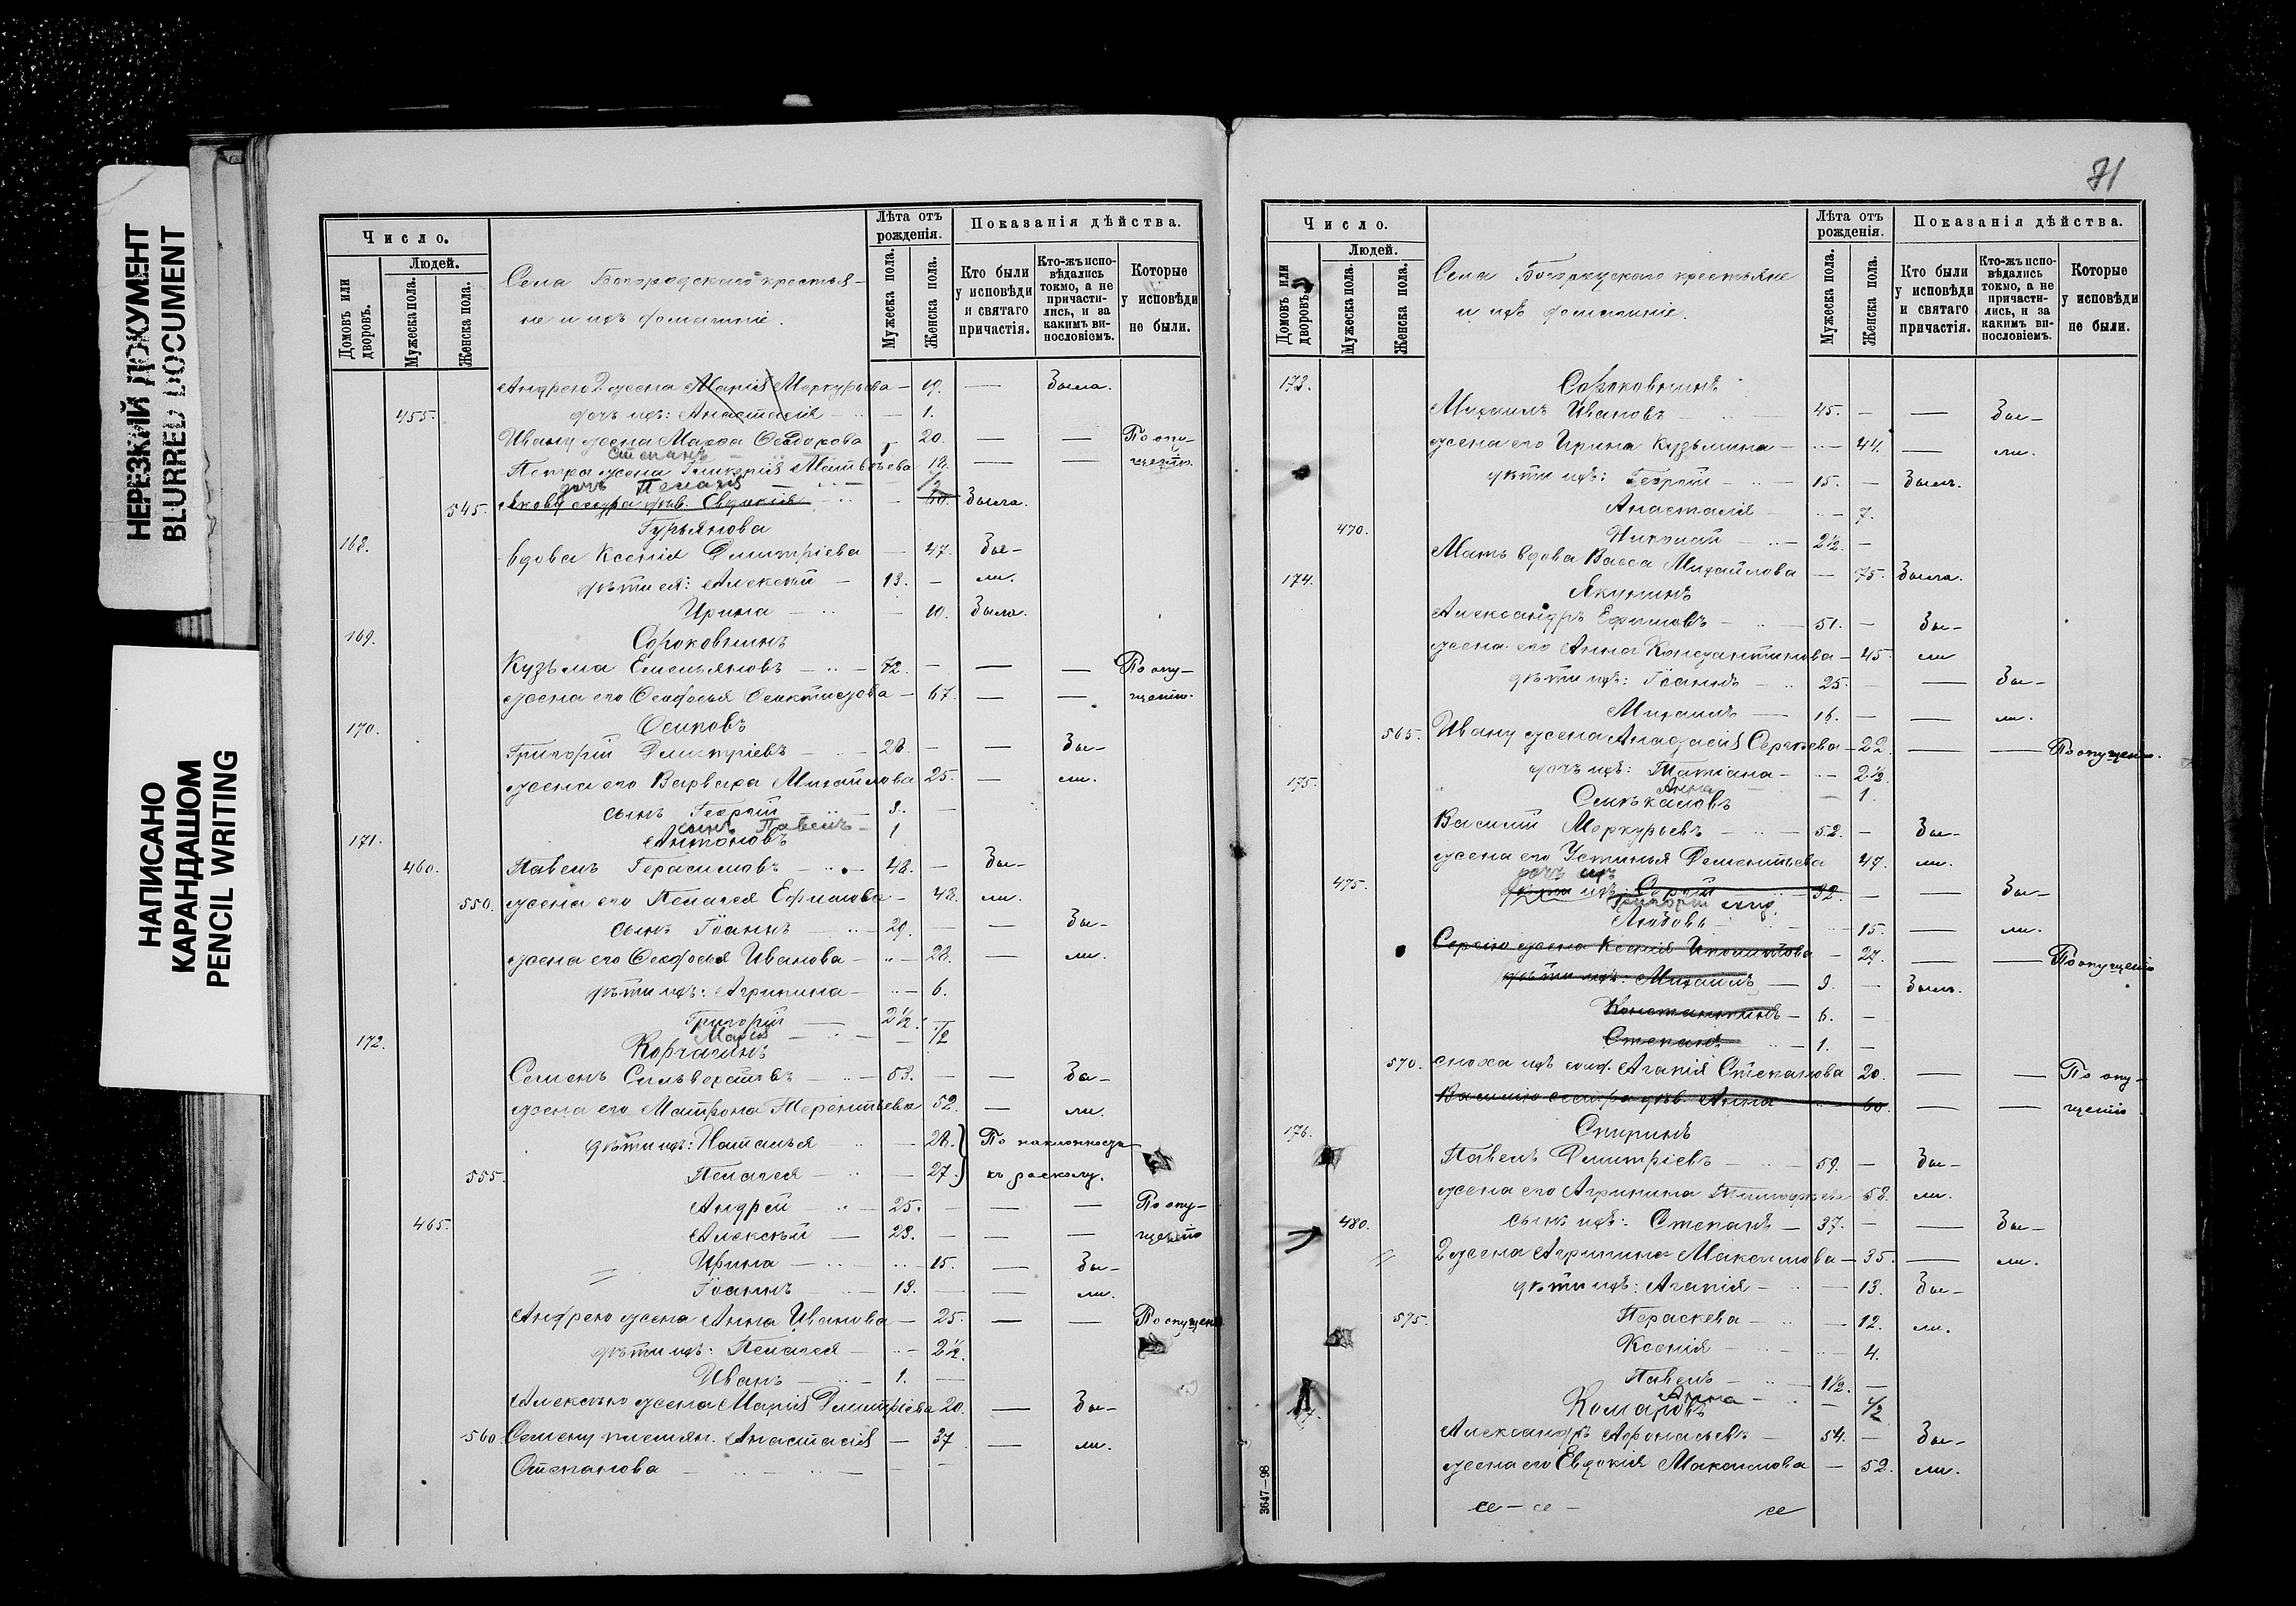 НЕРЕЗКИЙ ДОКУМЕНТ
BLURRED DOCUMENT
НАПИСАНО
КАРАНДАШОМ
PENCIL WRITING
Число.
Людей.
Домовъ или дворовъ.
Мужеска пола.
Женска пола.
Села Богородскаго крестья-
не и ихъ домашніе.
Лѣта отъ рожденія.
Мужеска пола.
Женска пола.
Показанія дѣйства.
Кто были у исповѣди и святаго причастія.
Кто-жъ испо-вѣдались токмо, а не причасти-лись, и за какимъ ви-нословіемъ.
Которые у исповѣди не были.
Андрею 2 жена Марія Меркурьева — 19. — Была.
455. дочь ихъ: Анастасія — 1.
Ивану жена Марѳа Ѳеодорова 20. — — По опу-
Степанъ
Петра жена Гликерія Матвѣева 18. — — щенію.
дочь Пелагія — 1/2
545. Якову сестра дѣв. Евдокія — 60. Была.
168. Гурьянова
вдова Ксенія Димитріева — 47. Бы-
дѣти ея: Алексѣй — 13. — ли.
Ирина — 10. Была.
169. Сороковнинъ
Кузьма Емельяновъ — 72. — — — По опу-
жена его Ѳеодосья Ѳеоктистова — 67. — — щенію.
170. Осиповъ
Григорій Димитріевъ — 28. — — Бы-
жена его Варвара Михайлова 25. — ли.
сынъ Георгій — 3. —
сынъ Павелъ — 1
171. Антоновъ
460. Павелъ Герасимовъ — 48. — Бы-
550. жена его Пелагея Ефимова — 48. ли.
сынъ Іоаннъ — 29. — — Бы-
жена его Ѳеодосья Иванова — 28. — ли.
дѣти ихъ: Агрипина — 6.
Григорій — 2½. —
Марія — 1/2
172. Корчагинъ
Семенъ Сильверстовъ — 53. — — Бы-
жена его Матрона Терентьева 52. — ли.
дѣти ихъ: Наталья — 28. По наклонности
555. Пелагея — 27. къ расколу.
Андрей — 25. — — — По опу-
465. Алексѣй — 23. — — — щенію
Ирина — 15. — Бы-
Іоаннъ — 13. — — ли.
Андрею жена Анна Иванова — 25. — — По опущен
дѣти ихъ: Пелагея — 2½.
Иванъ — 1. —
Алексѣю жена Марія Димитріева 20. — Бы-
560. Семену племян. Анастасія — 37 — ли.
Степанова — — —
71
Число.
Людей.
Домовъ или дворовъ.
Мужеска пола.
Женска пола.
Села Богородскаго крестьяне
и ихъ домашніе.
Лѣта отъ рожденія.
Мужеска пола.
Женска пола.
Показанія дѣйства.
Кто были у исповѣди и святаго причастія.
Кто-жъ испо-вѣдались токмо, а не причасти-лись, и за какимъ ви-нословіемъ.
Которые у исповѣди не были.
173. Сороковнинъ
Михаилъ Ивановъ — 45. — — Бы-
жена его Ирина Кузьмина — 44. — ли.
дѣти ихъ: Георгій — 15. — Былъ.
Анастасія — 7.
470. Николай — 2½. —
Мать вдова Васса Михайлова — 75. Была.
174. Якунинъ
Александръ Ефимовъ — 51. — Бы-
жена его Анна Константинова — 45. ли
дѣти ихъ: Іоаннъ — 25. — — Бы-
Михаилъ — 16. — — ли.
565. Ивану жена Анастасія Сергѣева — 22. — — По опущенію.
дочь ихъ: Татіана — 2½.
Анна — 1.
175.
Василій Меркурьевъ — 52. — Бы-
жена его Устинья Дементьева 47. ли.
дочь ихъ
475. дѣти ихъ: Сергѣй — 32. — — Бы-
Григорій
Любовь — 15. — ли.
Сергію жена Ксенія Ипполитова — 27. — — По опущенію
дѣти ихъ: Михаилъ — 9. — Былъ.
Константинъ — 6. —
Степанъ — 1. —
570. сноха ихъ Агапія Степанова 20. — — По опу-
Василію сестра дѣв. Анна — 60. — — щенію
176. Спиринъ
Павелъ Димитріевъ — 59. — Бы-
жена его Агрипина Тимофѣева 58. ли.
480. сынъ ихъ: Степанъ — 37. — — Бы-
2 жена Агрипина Максимова — 35. — ли.
дѣти ихъ: Агапія — 13. Бы-
575. Параскева — 12. ли.
Ксенія — 4.
Павелъ — 1½. —
Анна — 1/2
Комаровъ
Александръ Афонасьевъ — 54. — Бы-
жена его Евдокія Максимова — 52. ли.
3647—98